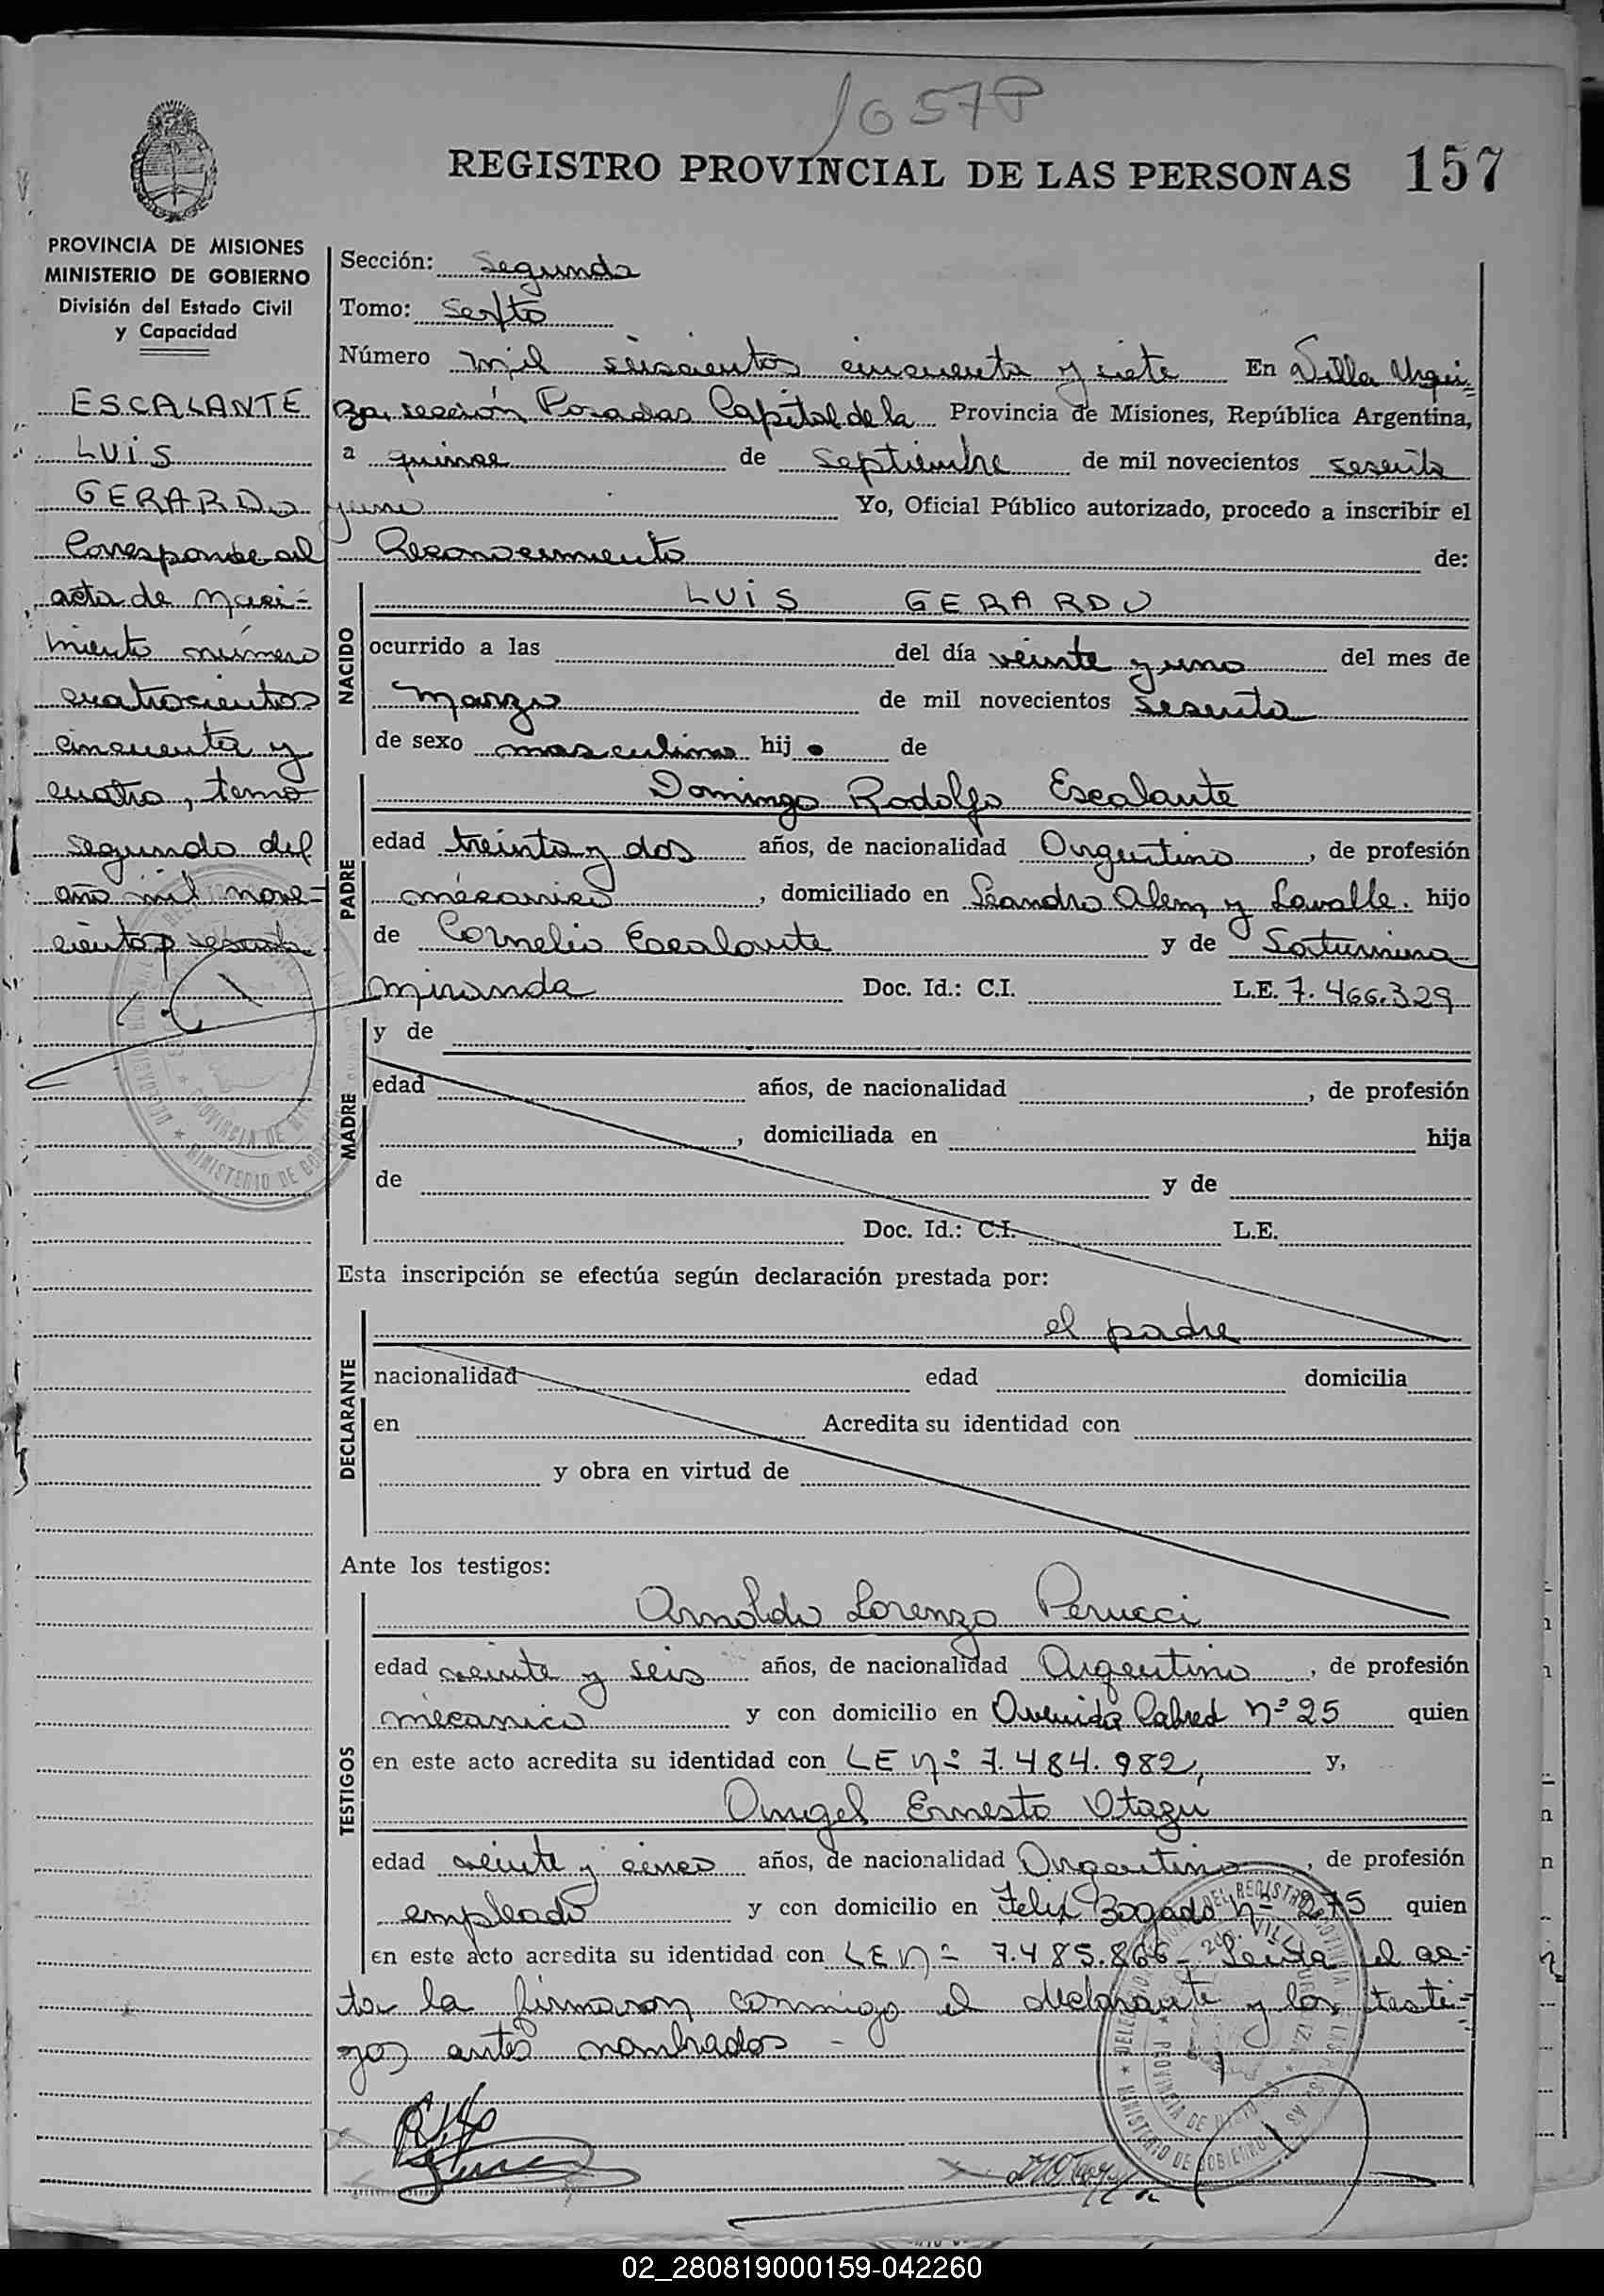 1657P
REGISTRO PROVINCIAL DE LAS PERSONAS 157
PROVINCIA DE MISIONES
MINISTERIO DE GOBIERNO
División del Estado Civil
y Capacidad
ESCALANTE
LUIS
GERARDO
Corresponde al
acta de naci-
miento número
cuatrocientos
cincuenta y
cuatro, tomo
segundo del
año mil nove-
cientos sesenta
Sección: Segunda
Tomo: Sexto
Número mil seiscientos cincuenta y siete En Villa Urqui-
za, sección Posadas Capital de la Provincia de Misiones, República Argentina,
a quince de Septiembre de mil novecientos sesenta
y uno Yo, Oficial Público autorizado, procedo a inscribir el
Reconocimiento de:
NACIDO
LUIS GERARDO
ocurrido a las del día veinte y uno del mes de
Marzo de mil novecientos sesenta
de sexo masculino hijo de
PADRE
Domingo Rodolfo Escalante
edad treinta y dos años, de nacionalidad Argentino, de profesión
mécanico, domiciliado en Leandro Alem y Lavalle. hijo
de Cornelio Escalante y de Saturnina
Miranda Doc. Id.: C.I. L.E. 7.466.329
MADRE
y de
edad años, de nacionalidad , de profesión
, domiciliada en hija
de y de
Doc. Id.: C.I. L.E.
Esta inscripción se efectúa según declaración prestada por:
DECLARANTE
el padre
nacionalidad edad domicilia
en Acredita su identidad con
y obra en virtud de
Ante los testigos:
TESTIGOS
Arnoldo Lorenzo Perucci
edad veinte y seis años, de nacionalidad Argentino, de profesión
mécanico y con domicilio en Avenida Cabred nº 25 quien
en este acto acredita su identidad con LE nº 7.484.982, y,
Angel Ernesto Otazu
edad veinte y cinco años, de nacionalidad Argentino, de profesión
empleado y con domicilio en Felix Bogado nº 275 quien
en este acto acredita su identidad con LE nº 7.485.866- Leida el ac-
ta la firmaron conmigo el declarante y los testi-
gos antes nombrados -
02_280819000159-042260